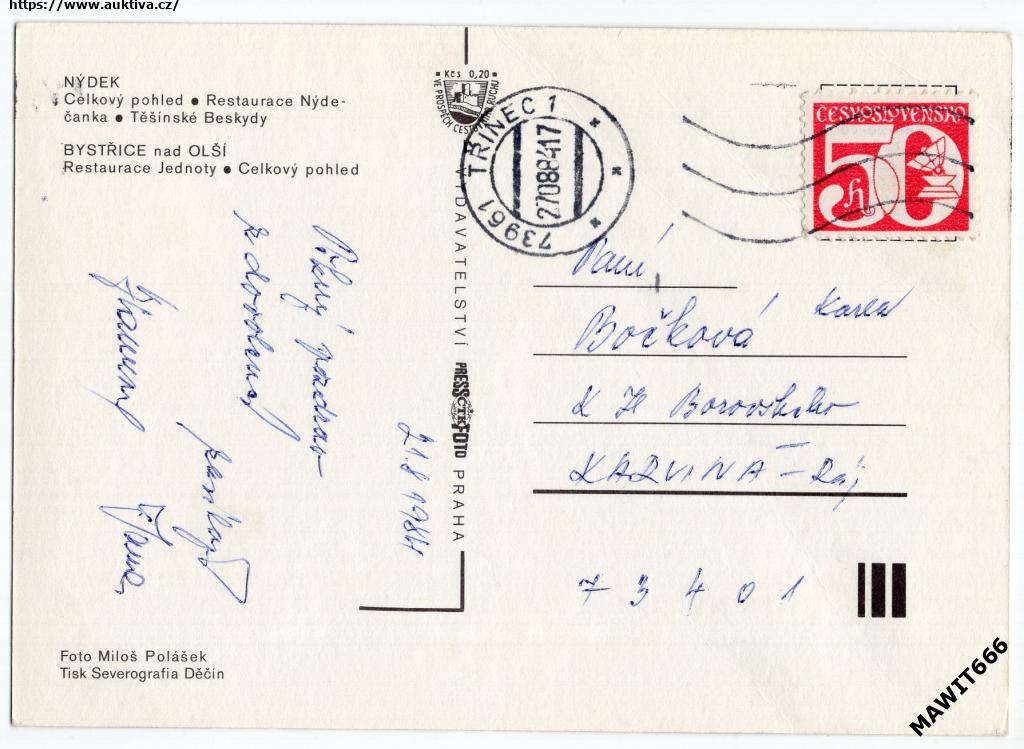 https://www.auktiva.cz/
NÝDEK
Celkový pohled ● Restaurace Nýde-
čanka ● Těšínské Beskydy
BYSTŘICE nad OLŠÍ
Restaurace Jednoty ● Celkový pohled
Kčs 0,20
VE PROSPĚCH CESTOVNÍHO RUCHU
73961 TŘINEC 1
270884 17
ČESKOSLOVENSKO
50 h
VYDAVATELSTVÍ PRESSFOTO PRAHA
ČTK
Pěkný pozdrav
z dovolené
21.8 1984
Paní
Bočková
K H Borovského
KARVINÁ - Ráj
73401
Foto Miloš Polášek
Tisk Severografia Děčín
MAWIT666